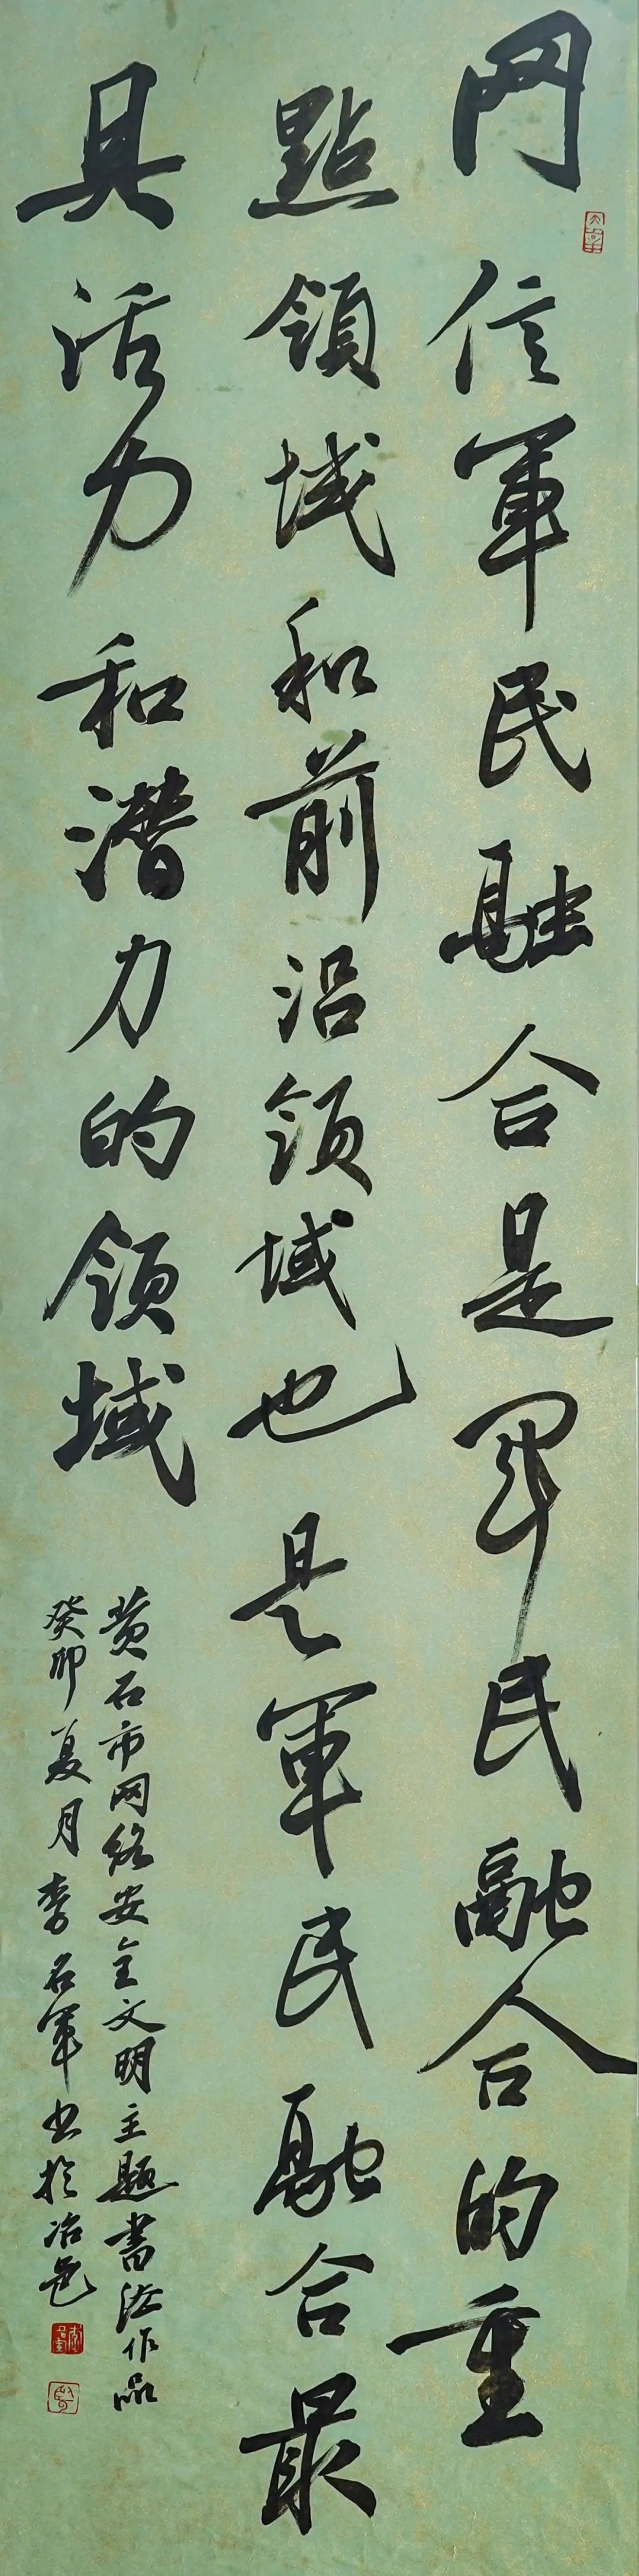 网信軍民融合是军民融合的重
點領域和前沿领域也是軍民融合最
具活力和潜力的领域
黄石市网络安全文明主题書法作品
癸卯夏月李名軍书於冶邑